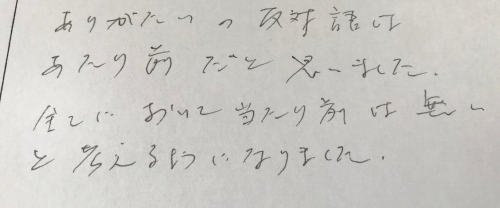 ありがたいの反対語は
あたり前だと思いました.
全てにおいて当たり前は無い
と考えるようになりました.